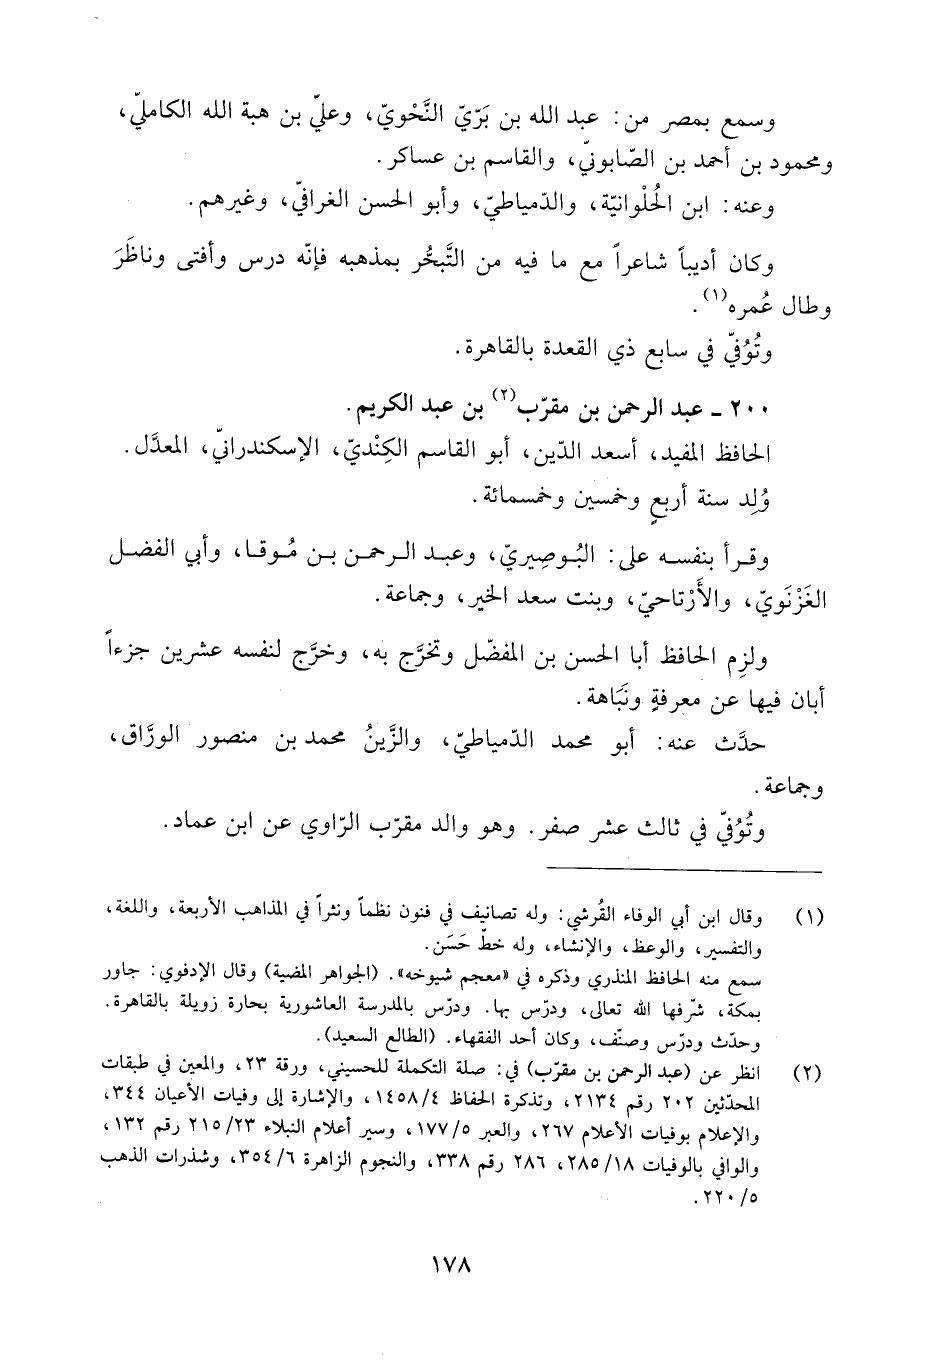 وسمع بمصر من: عبد الله بن بَرّيّ النَّحْويّ، وعليّ بن هبة الله الكامليّ،
ومحمود بن أحمد بن الصّابونيّ، والقاسم بن عساكر.
وعنه: ابن الحُلْوانيّة، والدّمياطيّ، وأبو الحسن الغرافيّ، وغيرهم.
وكان أديباً شاعراً مع ما فيه من التَّبحُّر بمذهبه فإنّه درس وأفتى وناظَرَ
وطال عُمره(١).
وتُوُفّي في سابع ذي القعدة بالقاهرة.
٢٠٠ ـ عبد الرحمن بن مقرّب(٢) بن عبد الكريم.
الحافظ المفيد، أسعد الدّين، أبو القاسم الكِنْديّ، الإسكندرانيّ، المعدَّل.
وُلِد سنة أربعٍ وخمسين وخمسمائة.
وقرأ بنفسه على: البُوصِيريّ، وعبد الرحمن بن مُوقا، وأبي الفضل
الغَزْنَويّ، والأَرْتاحيّ، وبنت سعد الخير، وجماعة.
ولزِم الحافظ أبا الحسن بن المفضّل وتخرَّج به، وخرَّج لنفسه عشرين جزءاً
أبان فيها عن معرفةٍ ونَبَاهة.
حدَّث عنه: أبو محمد الدّمياطيّ، والزَّينُ محمد بن منصور الورَّاق،
وجماعة.
وتُوُفّي في ثالث عشر صفر. وهو والد مقرّب الرّاوي عن ابن عماد.
(١) وقال ابن أبي الوفاء القُرشي: وله تصانيف في فنون نظماً ونثراً في المذاهب الأربعة، واللغة،
والتفسير، والوعظ، والإنشاء، وله خطّ حَسَن.
سمع منه الحافظ المنذري وذكره في «معجم شيوخه». (الجواهر المضية) وقال الإدفوي: جاور
بمكة، شرّفها الله تعالى، ودرّس بها. ودرّس بالمدرسة العاشورية بحارة زويلة بالقاهرة.
وحدّث ودرّس وصنّف، وكان أحد الفقهاء. (الطالع السعيد).
(٢) انظر عن (عبد الرحمن بن مقرّب) في: صلة التكملة للحسيني، ورقة ٢٣، والمعين في طبقات
المحدّثين ٢٠٢ رقم ٢١٣٤، وتذكرة الحفاظ ١٤٥٨/٤، والإشارة إلى وفيات الأعيان ٣٤٤،
والإعلام بوفيات الأعلام ٢٦٧، والعبر ١٧٧/٥، وسير أعلام النبلاء ٢١٥/٢٣ رقم ١٣٢،
والوافي بالوفيات ٢٨٥/١٨، ٢٨٦ رقم ٣٣٨، والنجوم الزاهرة ٣٥٤/٦، وشذرات الذهب
٢٢٠/٥.
١٧٨